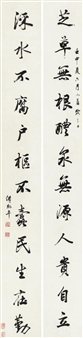 芝草無根醴泉無源人貴自立
深水不腐户樞不蠹民生在勤